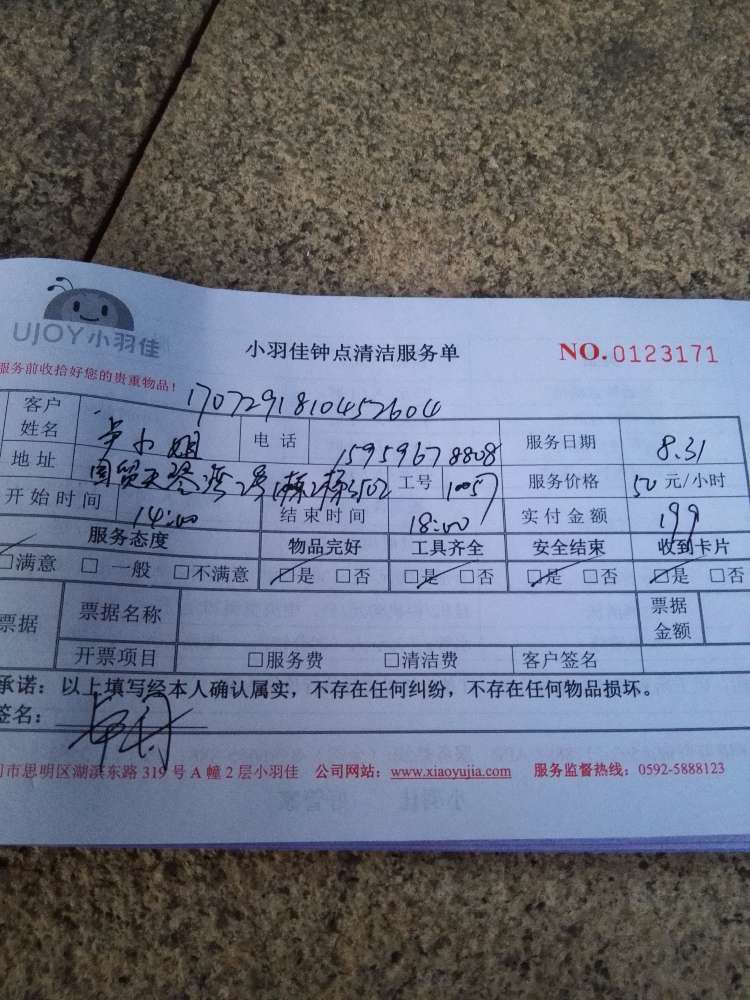 UJOY小羽佳
小羽佳钟点清洁服务单
NO.0123171
服务前收拾好您的贵重物品！
1707291810452604
客户姓名 小姐 电话 15959678808 服务日期 8.31
地址 国贸天琴湾 工号 服务价格 50元/小时
开始时间 14:00 结束时间 18:00 实付金额 199
服务态度 物品完好 工具齐全 安全结束 收到卡片
□满意 □一般 □不满意 □是 □否 □是 □否 □是 □否 □是 □否
票据 票据名称 票据金额
开票项目 □服务费 □清洁费 客户签名
承诺：以上填写经本人确认属实，不存在任何纠纷，不存在任何物品损坏。
签名：
市思明区湖滨东路319号A幢2层小羽佳 公司网站：www.xiaoyujia.com 服务监督热线：0592-5888123